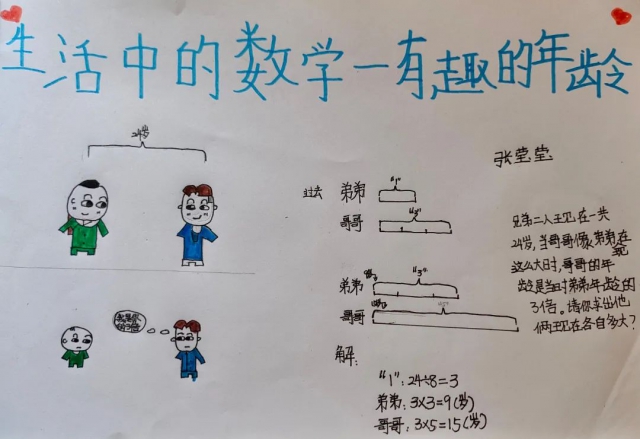 生活中的数学—有趣的年龄
24岁
张莹莹
过去
弟弟
"1"
哥哥
"3"
兄弟二人现在一共
24岁,当哥哥像弟弟现在
这么大时,哥哥的年
龄是当时弟弟年龄的
3倍。请你求出他
俩现在各自多大?
弟弟
"3"
哥哥
我是你
的3倍
解:
"1":24÷8=3
弟弟:3×3=9(岁)
哥哥:3×5=15(岁)